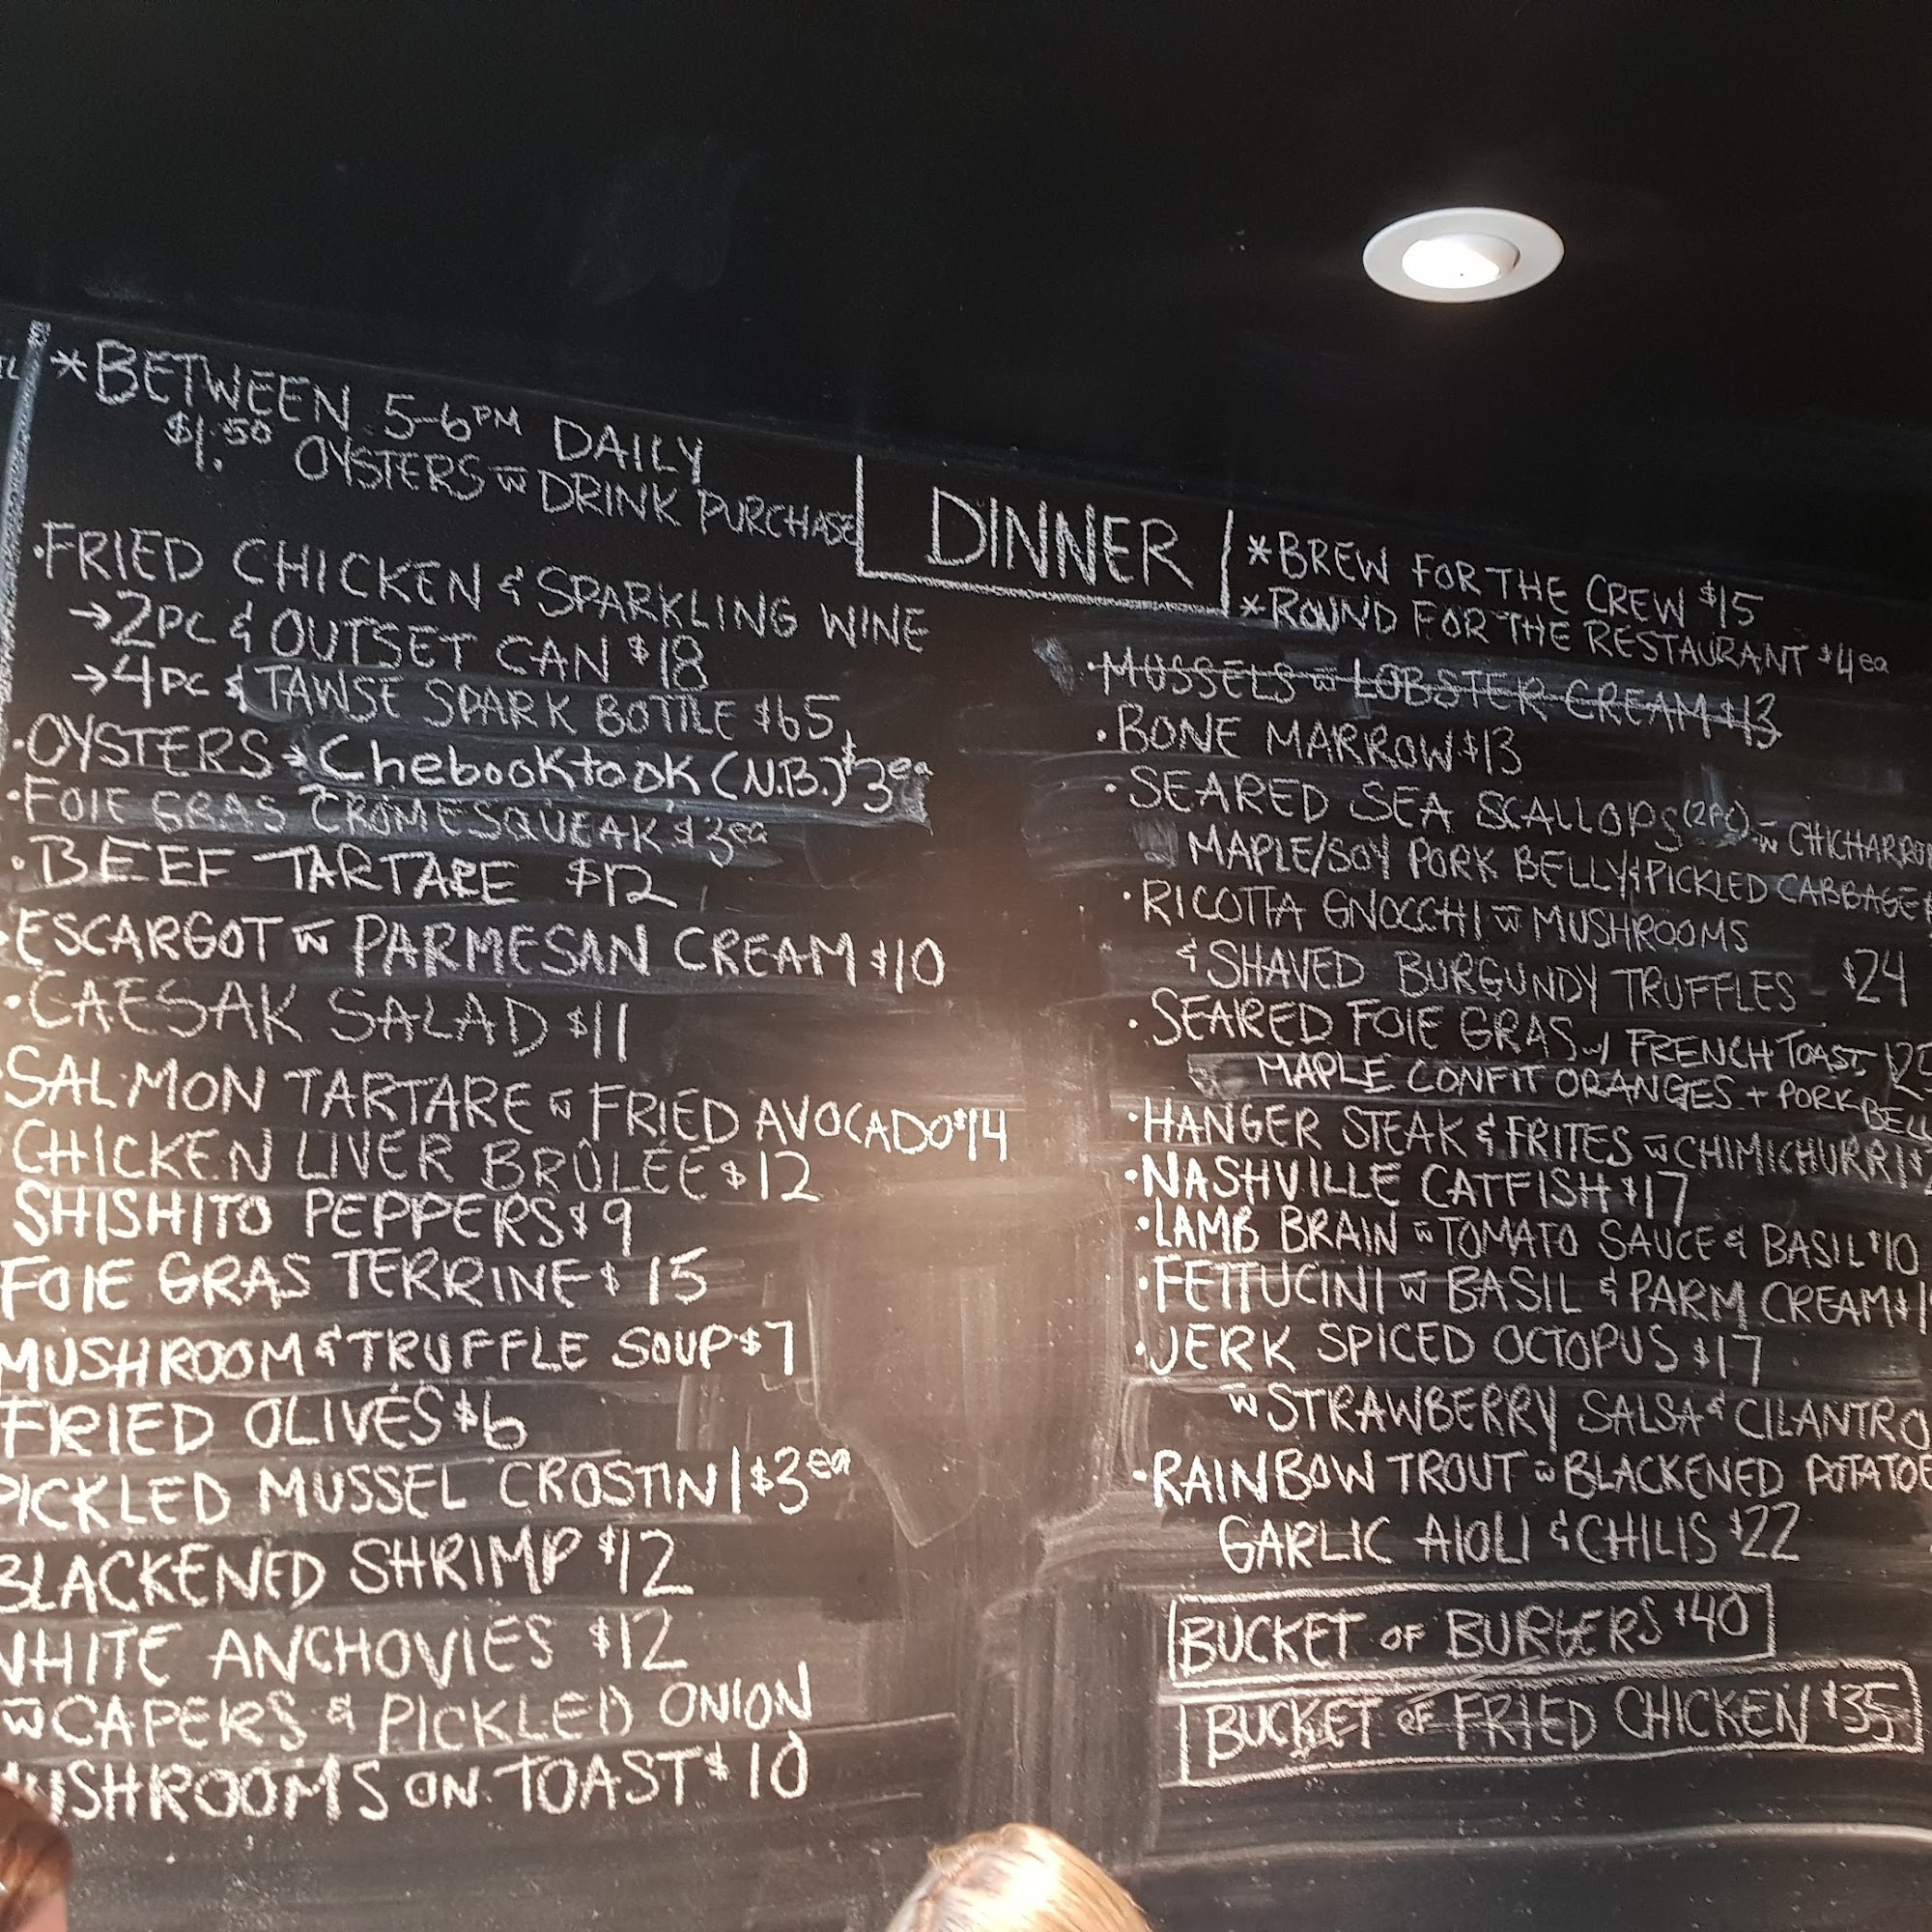 *BETWEEN 5-6PM DAILY
$1.50 OYSTERS w DRINK PURCHASE
·FRIED CHICKEN & SPARKLING WINE
→2PC & OUTSET CAN $18
→4PC & TAWSE SPARK BOTTLE $65
·OYSTERS→Chebooktook (N.B.) $3ea
·FOIE GRAS CROMESQUEAK $3ea
·BEEF TARTARE $12
·ESCARGOT w PARMESAN CREAM $10
·CAESAR SALAD $11
·SALMON TARTARE w FRIED AVOCADO $14
·CHICKEN LIVER BRÛLÉE $12
SHISHITO PEPPERS $9
FOIE GRAS TERRINE $15
MUSHROOM & TRUFFLE SOUP $7
FRIED OLIVES $6
PICKLED MUSSEL CROSTINI $3ea
BLACKENED SHRIMP $12
WHITE ANCHOVIES $12
w CAPERS & PICKLED ONION
MUSHROOMS ON TOAST $10
DINNER
*BREW FOR THE CREW $15
*ROUND FOR THE RESTAURANT $4ea
·MUSSELS w LOBSTER CREAM $13
·BONE MARROW $13
·SEARED SEA SCALLOPS (2PC) w CHICHARRO
MAPLE/SOY PORK BELLY & PICKLED CABBAGE
·RICOTTA GNOCCHI w MUSHROOMS
& SHAVED BURGUNDY TRUFFLES $24
·SEARED FOIE GRAS w/ FRENCH TOAST
MAPLE CONFIT ORANGES + PORK BELL
·HANGER STEAK & FRITES w CHIMICHURRI $
·NASHVILLE CATFISH $17
·LAMB BRAIN w TOMATO SAUCE & BASIL $10
·FETTUCINI w BASIL & PARM CREAM $1
·JERK SPICED OCTOPUS $17
w STRAWBERRY SALSA & CILANTRO
·RAINBOW TROUT w BLACKENED POTATOE
GARLIC AIOLI & CHILIS $22
BUCKET OF BURGERS $40
BUCKET OF FRIED CHICKEN $35